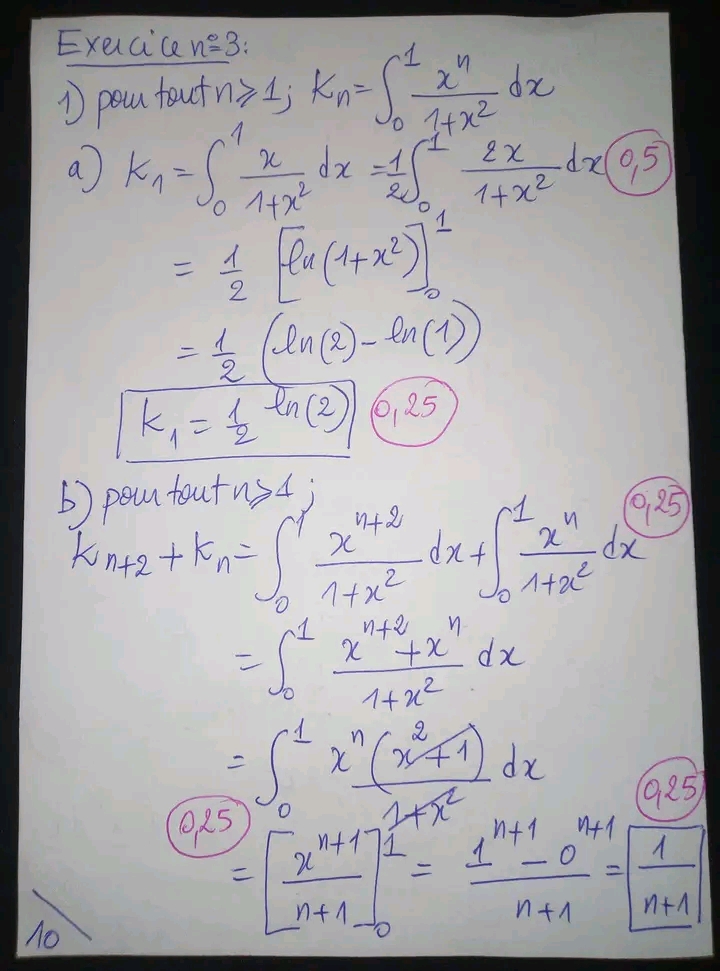 Exercice n°3:
1) pour tout n ⩾ 1; Kn = ∫₀¹ xⁿ/(1+x²) dx
a) K₁ = ∫₀¹ x/(1+x²) dx = 1/2 ∫₀¹ 2x/(1+x²) dx 0,5
= 1/2 [ln(1+x²)]₀¹
= 1/2 (ln(2) - ln(1))
K₁ = 1/2 ln(2) 0,25
b) pour tout n ⩾ 1;
Kₙ₊₂ + Kₙ = ∫₀¹ xⁿ⁺²/(1+x²) dx + ∫₀¹ xⁿ/(1+x²) dx 0,25
= ∫₀¹ (xⁿ⁺² + xⁿ)/(1+x²) dx
= ∫₀¹ xⁿ(x²+1)/(1+x²) dx
0,25 = [xⁿ⁺¹/(n+1)]₀¹ = (1ⁿ⁺¹ - 0ⁿ⁺¹)/(n+1) = 1/(n+1) 0,25
10